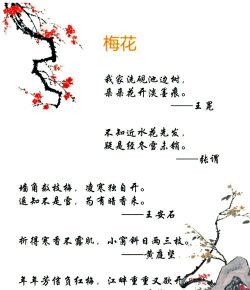 梅花
我家洗砚池边树，
朵朵花开淡墨痕。
——王冕
不知近水花先发，
疑是经冬雪未销。
——张谓
墙角数枝梅，凌寒独自开。
遥知不是雪，为有暗香来。
——王安石
折得寒香不露机，小窗斜日两三枝。
——黄庭坚
年年芳信负红梅，江畔重重又欲开